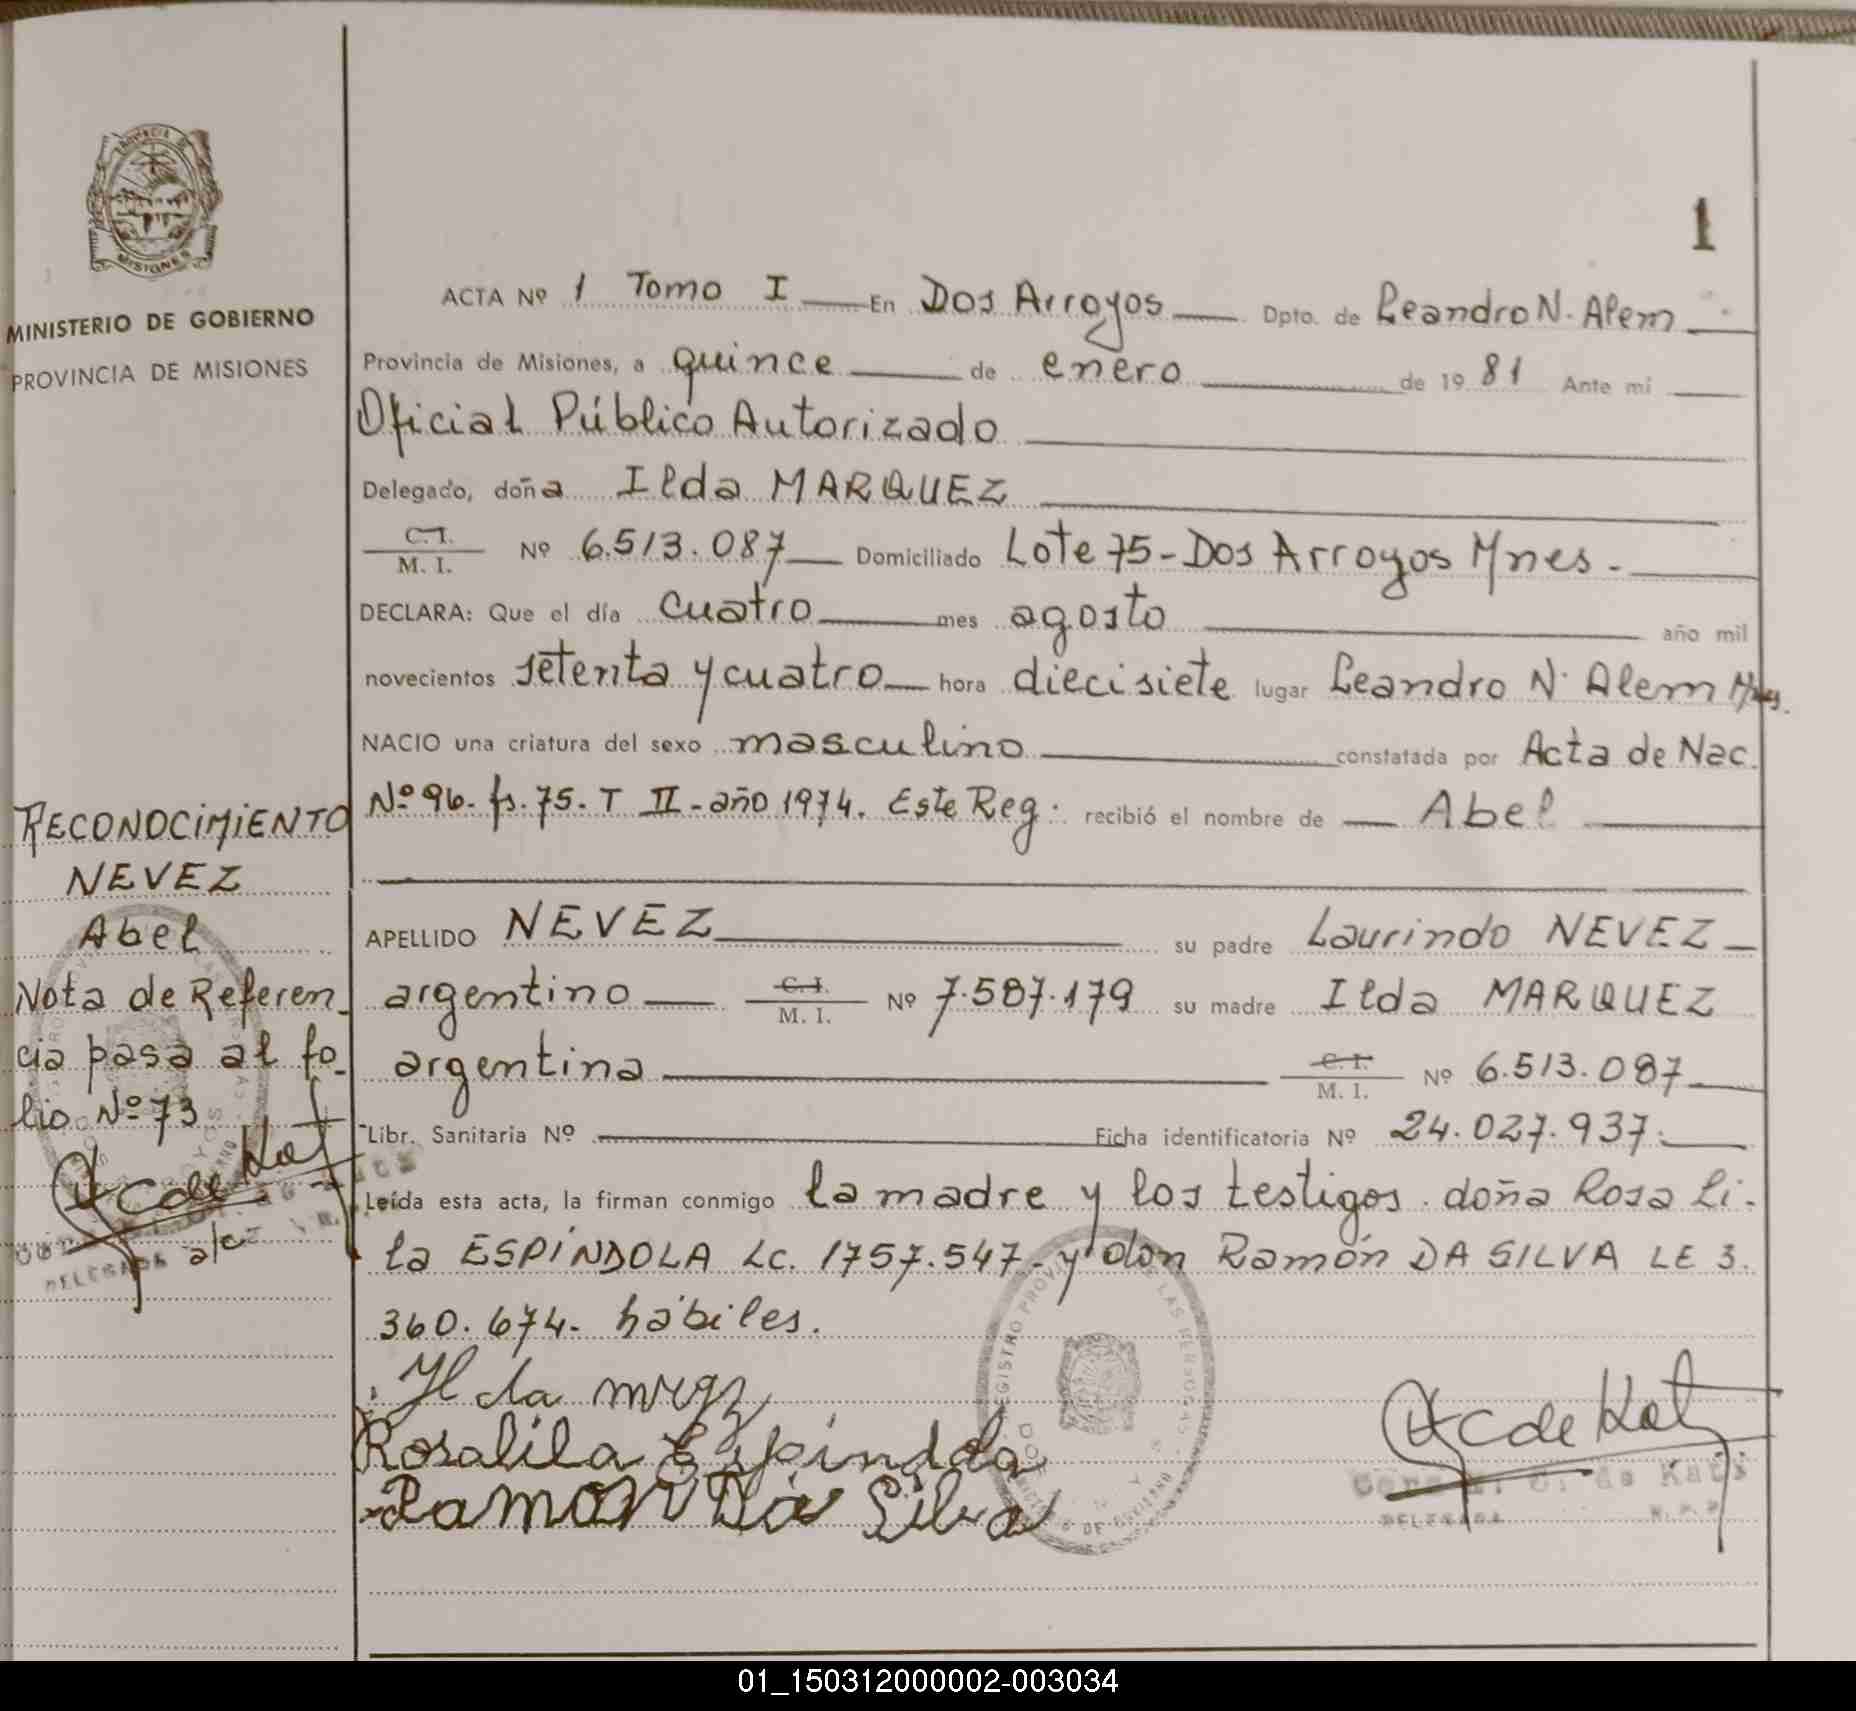 1
MINISTERIO DE GOBIERNO
PROVINCIA DE MISIONES
ACTA Nº 1 Tomo I En Dos Arroyos Dpto. de Leandro N. Alem
Provincia de Misiones, a quince de enero de 19 81 Ante mi
Oficial Público Autorizado
Delegado, doña Ilda MARQUEZ
C.I. / M. I. Nº 6.513.087 Domiciliado Lote 75-Dos Arroyos Mnes.
DECLARA: Que el día cuatro mes agosto año mil
novecientos setenta y cuatro hora diecisiete lugar Leandro N. Alem Mnes.
NACIO una criatura del sexo masculino constatada por Acta de Nac.
Nº 96. fs. 75. T II - año 1974. Este Reg. recibió el nombre de Abel
APELLIDO NEVEZ su padre Laurindo NEVEZ
argentino C.I. / M. I. Nº 7.587.179 su madre Ilda MARQUEZ
argentina C.I. / M. I. Nº 6.513.087
Libr. Sanitaria Nº Ficha identificatoria Nº 24.027.937.
Leída esta acta, la firman conmigo la madre y los testigos doña Rosa Li-
la ESPÍNDOLA LC. 1757.547- y don Ramón DA SILVA LE 3.
360.674. hábiles.
Rosalila Espindola
Ramon Da Silva
C de Kat
DELEGADA
RECONOCIMIENTO
NEVEZ
Abel
Nota de Referen-
cia pasa al fo-
lio Nº 73
C de Kat
a/c
DELEGADA
MISIONES
01_150312000002-003034